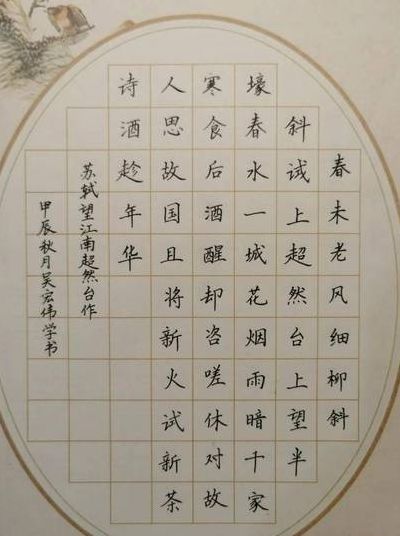 春未老风细柳斜
斜试上超然台上望半
壕春水一城花烟雨暗千家
寒食后酒醒却咨嗟休对故
人思故国且将新火试新茶
诗酒趁年华
苏轼望江南超然台作
甲辰秋月吴宏伟学书